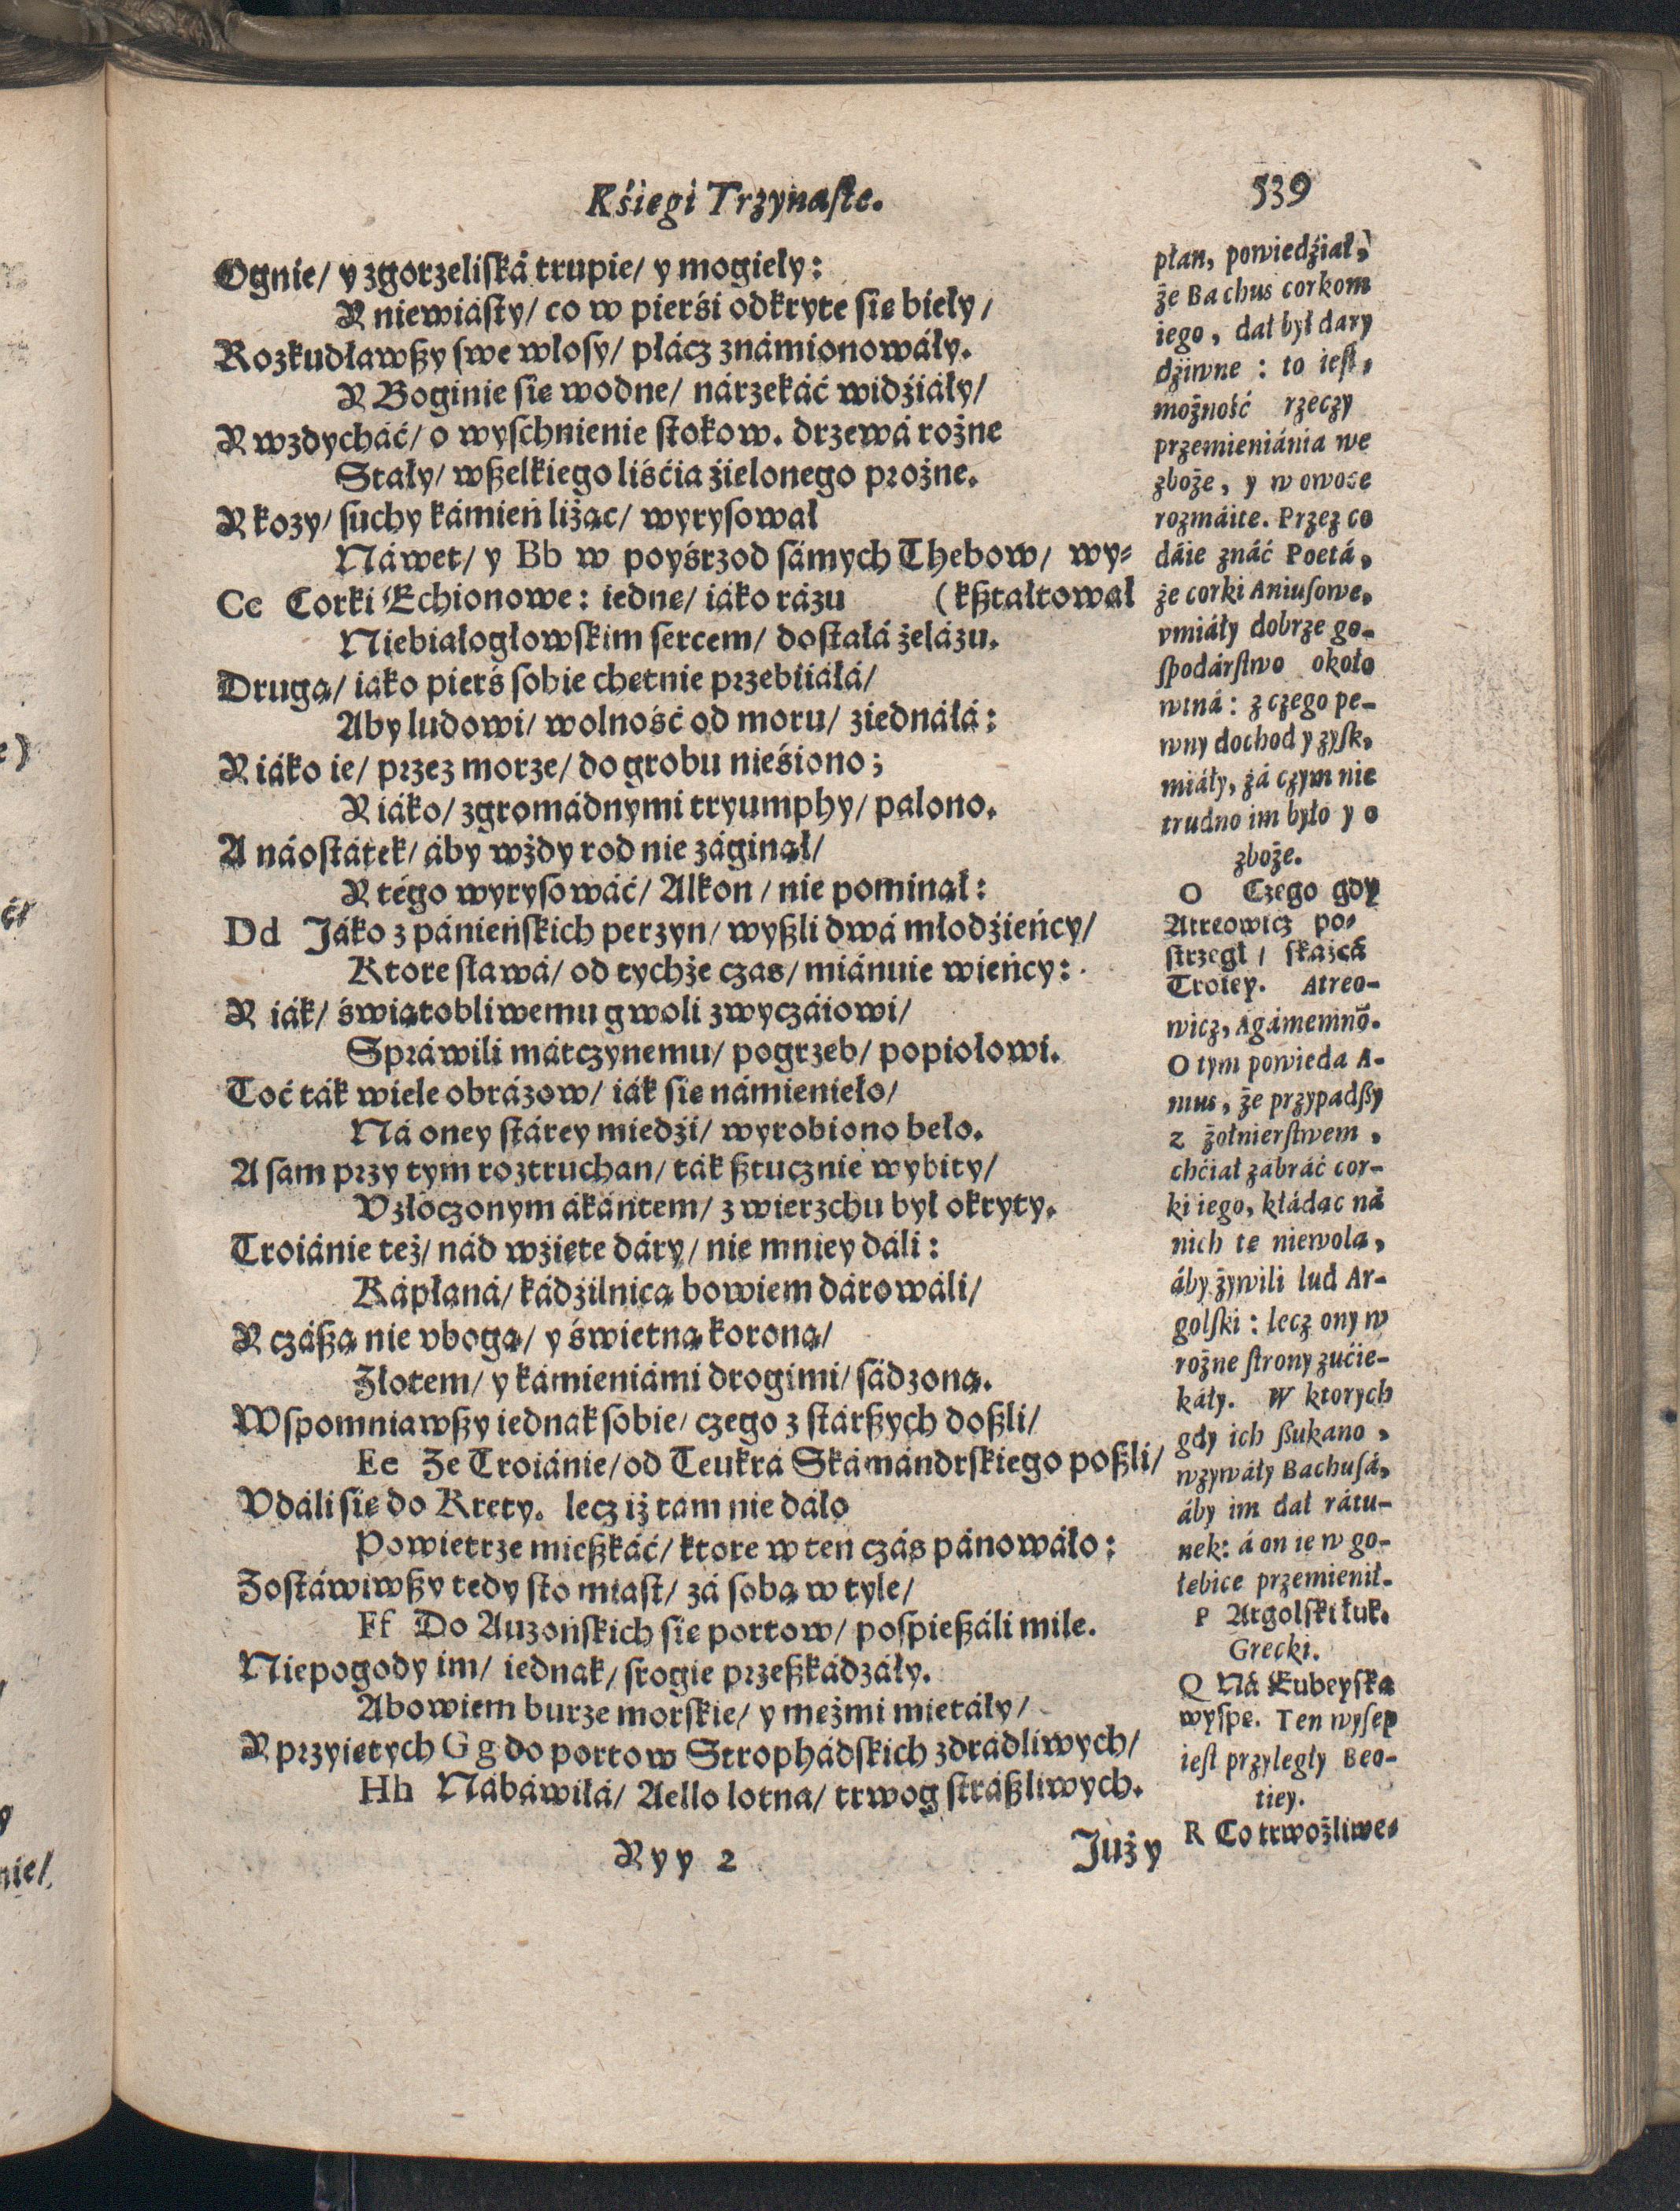 Kśiegi Trzynaſte.
539
Ognie/ y zgorzeliſká trupie/ y mogieły:
Y niewiásty/ co w pierśi odkryte ſie bieły/
Rozkudławßy ſwe włosy/ płácz známionowáły.
Y Boginie ſie wodne/ nárzekáć widźiáły/
Y wzdycháć/ o wyſchnienie ſtokow. drzewá rożne
Stały/ wßelkiego liśćia źielonego prożne.
Y kozy/ ſuchy kámień liżąc/ wyryſował
Náwet/ y Bb w poyśrzod ſámych Thebow/ wy-
Cc Corki Echionowe: iedne/ iáko rázu (kßtałtował
Niebiałogłowſkim ſercem/ doſtałá żelázu.
Drugą/ iáko pierś ſobie chetnie przebiiáłá/
Aby ludowi/ wolność od moru/ ziednáłá:
Y iáko ie/ przez morze/ do grobu nieśiono;
Y iáko/ zgromádnymi tryumphy/ palono.
A náoſtátek/ áby wżdy rod nie záginął/
Y tégo wyryſowáć/ Alkon/ nie pominął:
Dd Jáko z pánieńſkich perzyn/ wyßli dwá młodźieńcy/
Ktore ſławá/ od tychże czas/ miánuie wieńcy:
Y iák/ świątobliwemu gwoli zwyczáiowi/
Spráwili mátczynemu/ pogrzeb/ popiołowi.
Toć ták wiele obrázow/ iák ſie námieniełο/
Ná oney ſtárey miedźi/ wyrobiono beło.
A ſam przy tym roztruchan/ ták ßtucznie wybity/
Vzłoczonym ákántem/ z wierzchu był okryty.
Troiánie też/ nád wźiete dáry/ nie mniey dáli:
Kápłaná/ kádźilnicą bowiem dárowáli/
Y czáßą nie vbogą/ y świetną koroną/
Złotem/ y kámieniámi drogimi/ ſádzoną.
Wſpomniawßy iednak ſobie/ czego z ſtárßych doßli/
Ee Że Troiánie/ od Teukrá Skámándrſkiego poßli/
Vdáli ſie do Krety. lecz iż tám nie dáło
Powietrze mießkáć/ ktore w ten czás pánowáło:
Zoſtáwiwßy tedy ſto miaſt/ zá ſobą w tyle/
Ff Do Auzońſkich ſie portow/ poſpießáli mile.
Niepogody im/ iednak/ ſrogie przeßkádzáły.
Abowiem burze morſkie/ y meżmi mietáły/
Y przyietych Gg do portow Strophádſkich zdrádliwych/
Hh Nábáwiłá/ Aello lotna/ trwog ſtráßliwych.
Yyy 2
Już y
płan, powiedźiał,
że Bachus corkom
iego, dał był dary
dźiwne : to ieſt,
możność rzeczy
przemieniánia we
zboże, y w owoce
rozmáite. Przez co
dáie znáć Poetá,
że corki Aniuſowe,
vmiáły dobrze go-
ſpodárſtwo około
winá: z czego pe-
wny dochod y zyſk,
miáły, zá czym nie
trudno im było y o
zboże.
O Czego gdy
Atreowicz po-
ſtrzegł / ſkaźcá
Troiey. Atreo-
wicz, Agámemnō.
O tym powieda A-
mus, że przypadßy
z żołnierſtwem,
chćiał zábráć cor-
ki iego, kłádąc ná
nich te niewolą,
áby żywili lud Ar-
golſki: lecz ony w
rożne ſtrony zućie-
káły. W ktorych
gdy ich ßukano,
wzywáły Bachuſá,
áby im dał rátu-
nek: á on ie w go-
łebice przemienił.
P Argolſki łuk.
Grecki.
Q Ná Eubeyſką
wyſpe. Ten wyſep
ieſt przyległy Beo-
tiey.
R Co trwożliwe-